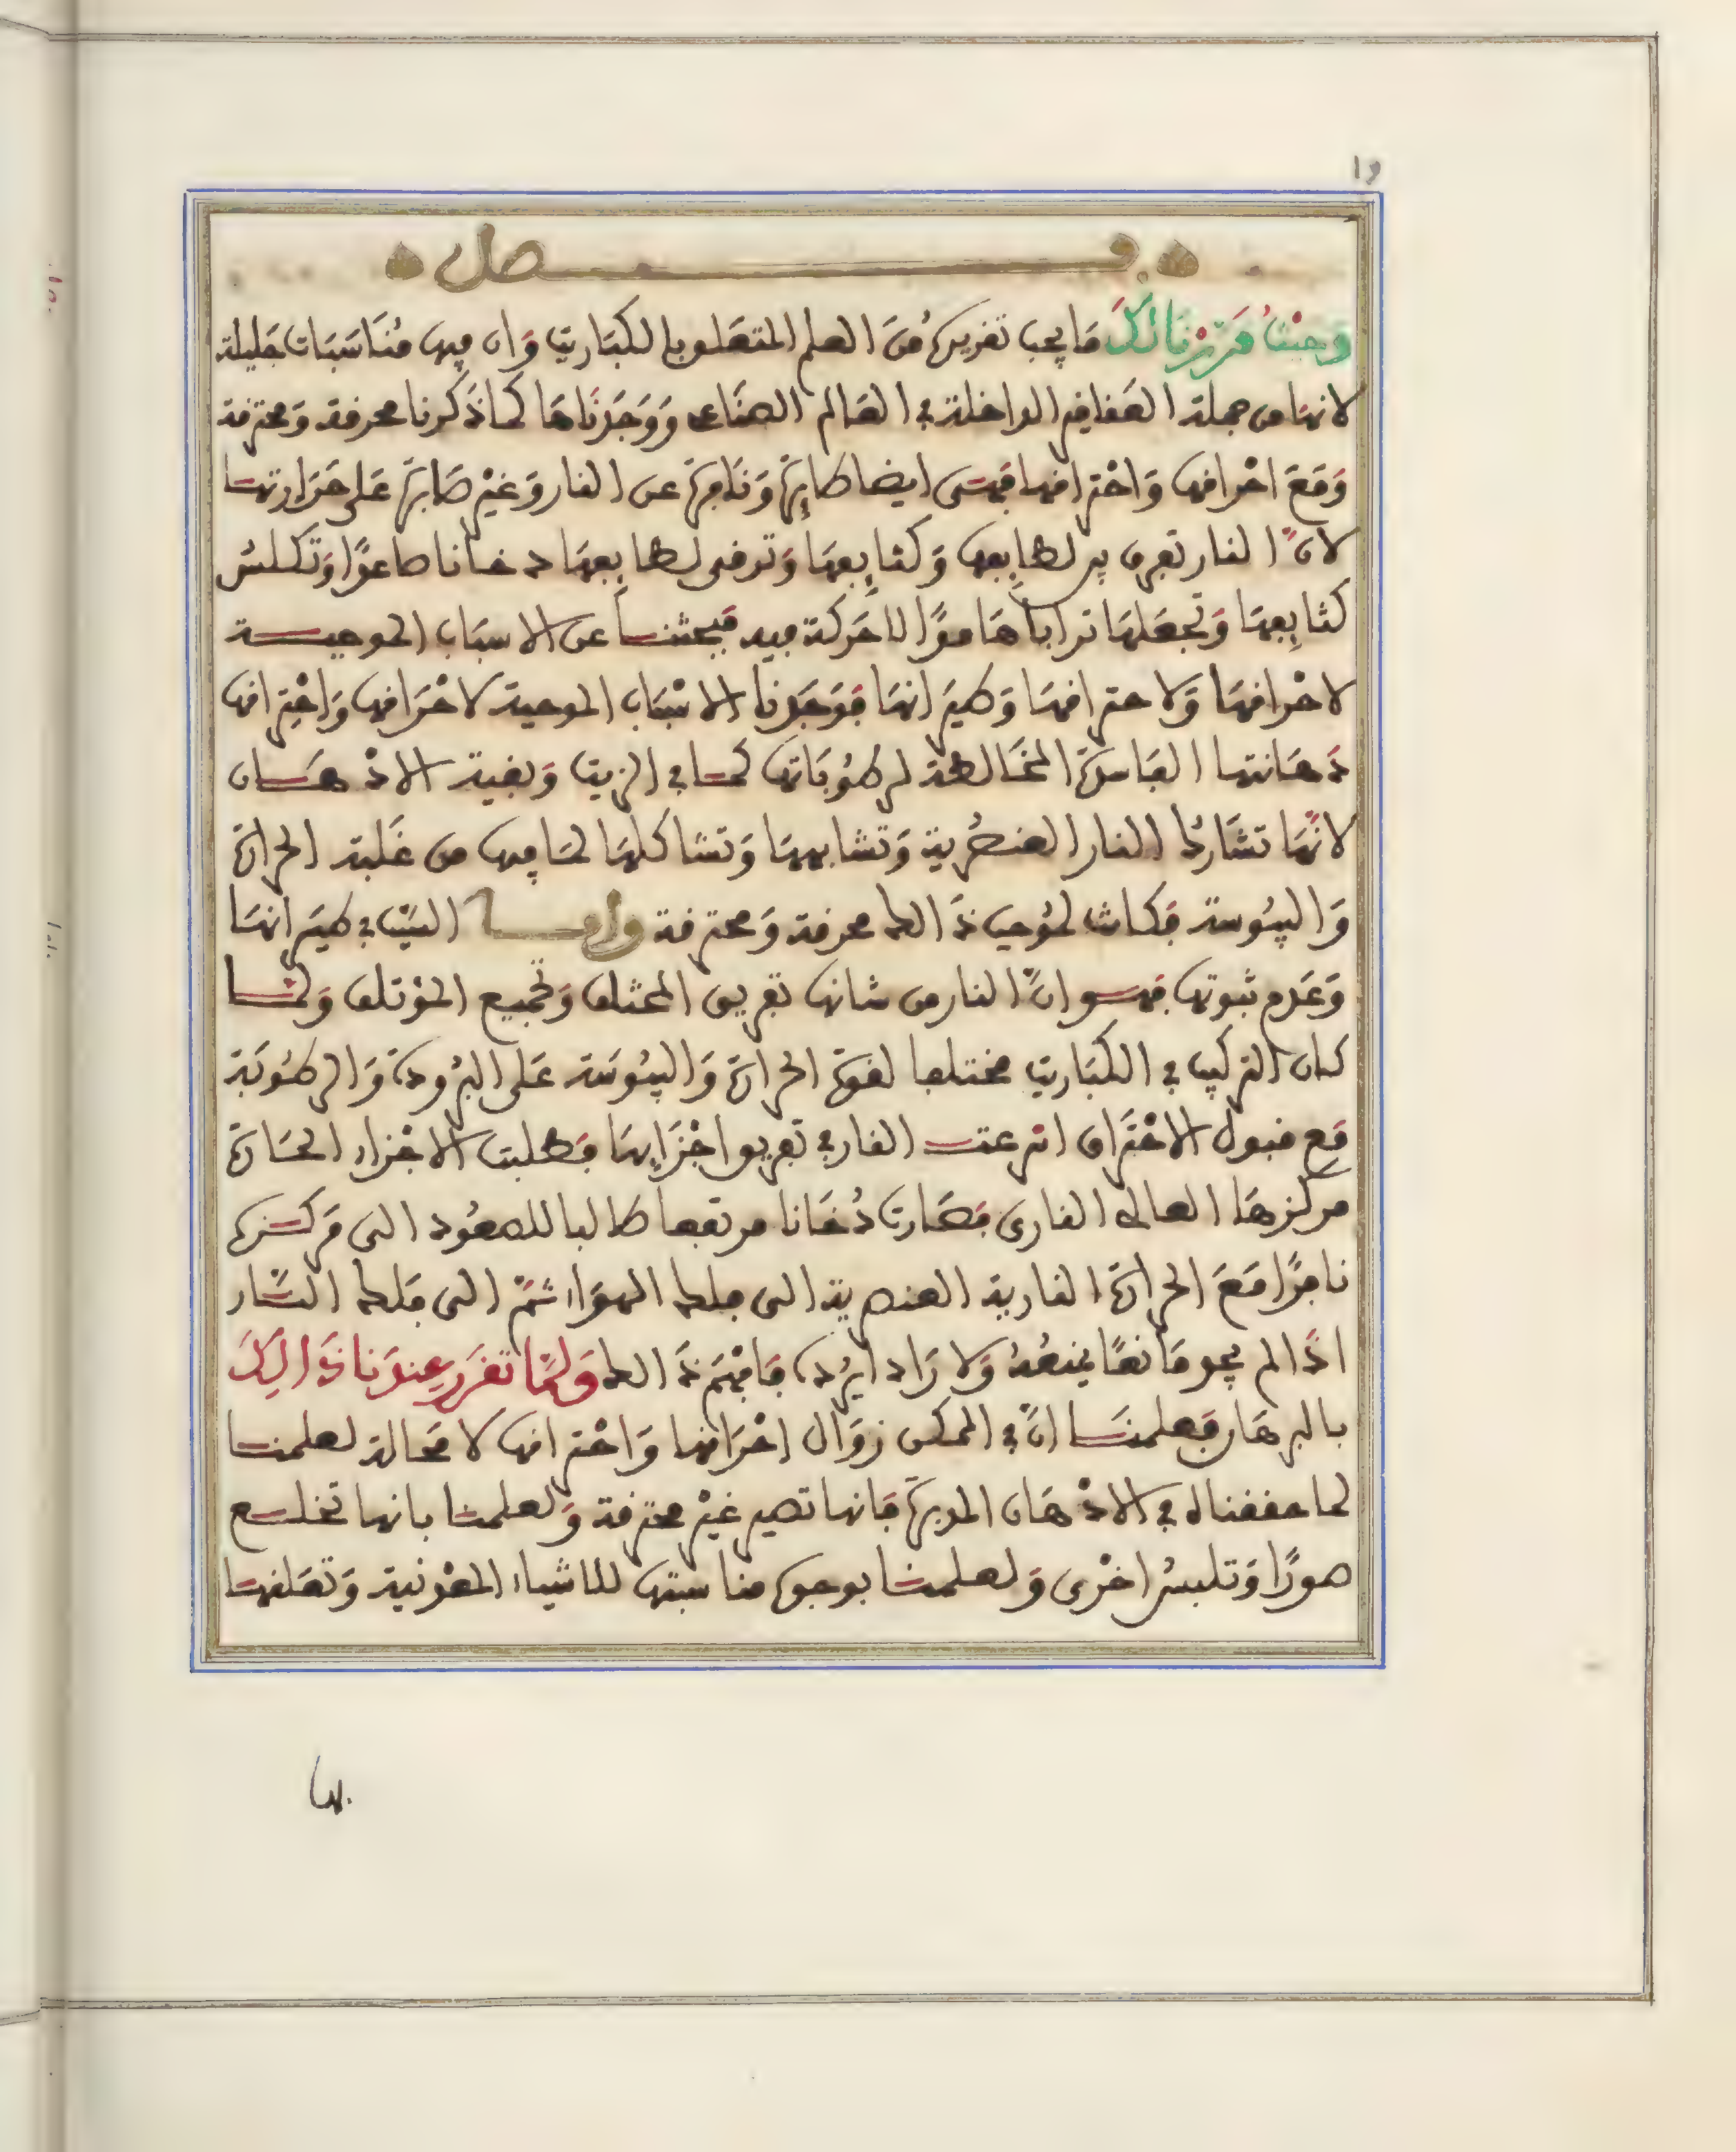 19
فصل
وحيث قررنا لك ما يجب تقريره من العلم المتعلق بالكباريت وان فيها مناسبات جليلة
لانها من جملة العقاقير الداخلة في العالم الصناعي ووجدناها كما ذكرنا محرقة ومحترقة
ومع احراقها واحتراقها فهي ايضا طايرة ونافرة عن النار وغير صابرة على حرارتها
لان النار تفرق بين لطايفها وكثايفها وترقى لطايفها دخانا صاعدا وتكلس
كثايفها وتجعلها ترابا هامدا لا حركة فيه فبحثنا عن الاسباب الموجبة
لاحراقها ولاحتراقها وطيرانها فوجدنا الاسباب الموجبة لاحراقها واحتراقها
دهانتها الفاسدة المخالطة لرطوباتها كما في الزيت وبقية الادهان
لانها تشارك النار العنصرية وتشابهها وتشاكلها لما فيها من غلبة الحرارة
واليبوسة فكانت لموجب ذالك محرقة ومحترقة واما السبب في طيرانها
وعدم ثبوتها فهو ان النار من شانها تفريق المختلف وتجميع المؤتلف ولما
كان التركيب في الكباريت مختلفا لقوة الحرارة واليبوسة على البرودة والرطوبة
مع قبول الاحتراق اسرعت النار في تفريق اجزايها فطلبت الاجزاء الحارة
مركزها العالى النارى فصارت دخانا مرتفعا طالبا للصعود الى مركزه
نافرا مع الحرارة النارية العنصرية الى فلك الهواء ثم الى فلك النار
اذا لم يجد مانعا يمنعه ولا رادا يرده فافهم ذالك ولما تقرر عندنا ذالك
بالبرهان فعلمنا ان في الممكن زوال احراقها واحتراقها لا محالة لعلمنا
لما حققناه في الادهان المدبرة فانها تصير غير محترقة ولعلمنا بانها تخلع
صورا وتلبس اخرى ولعلمنا بوجود مناسبتها للاشياء المعدنية وتعلقها
بها